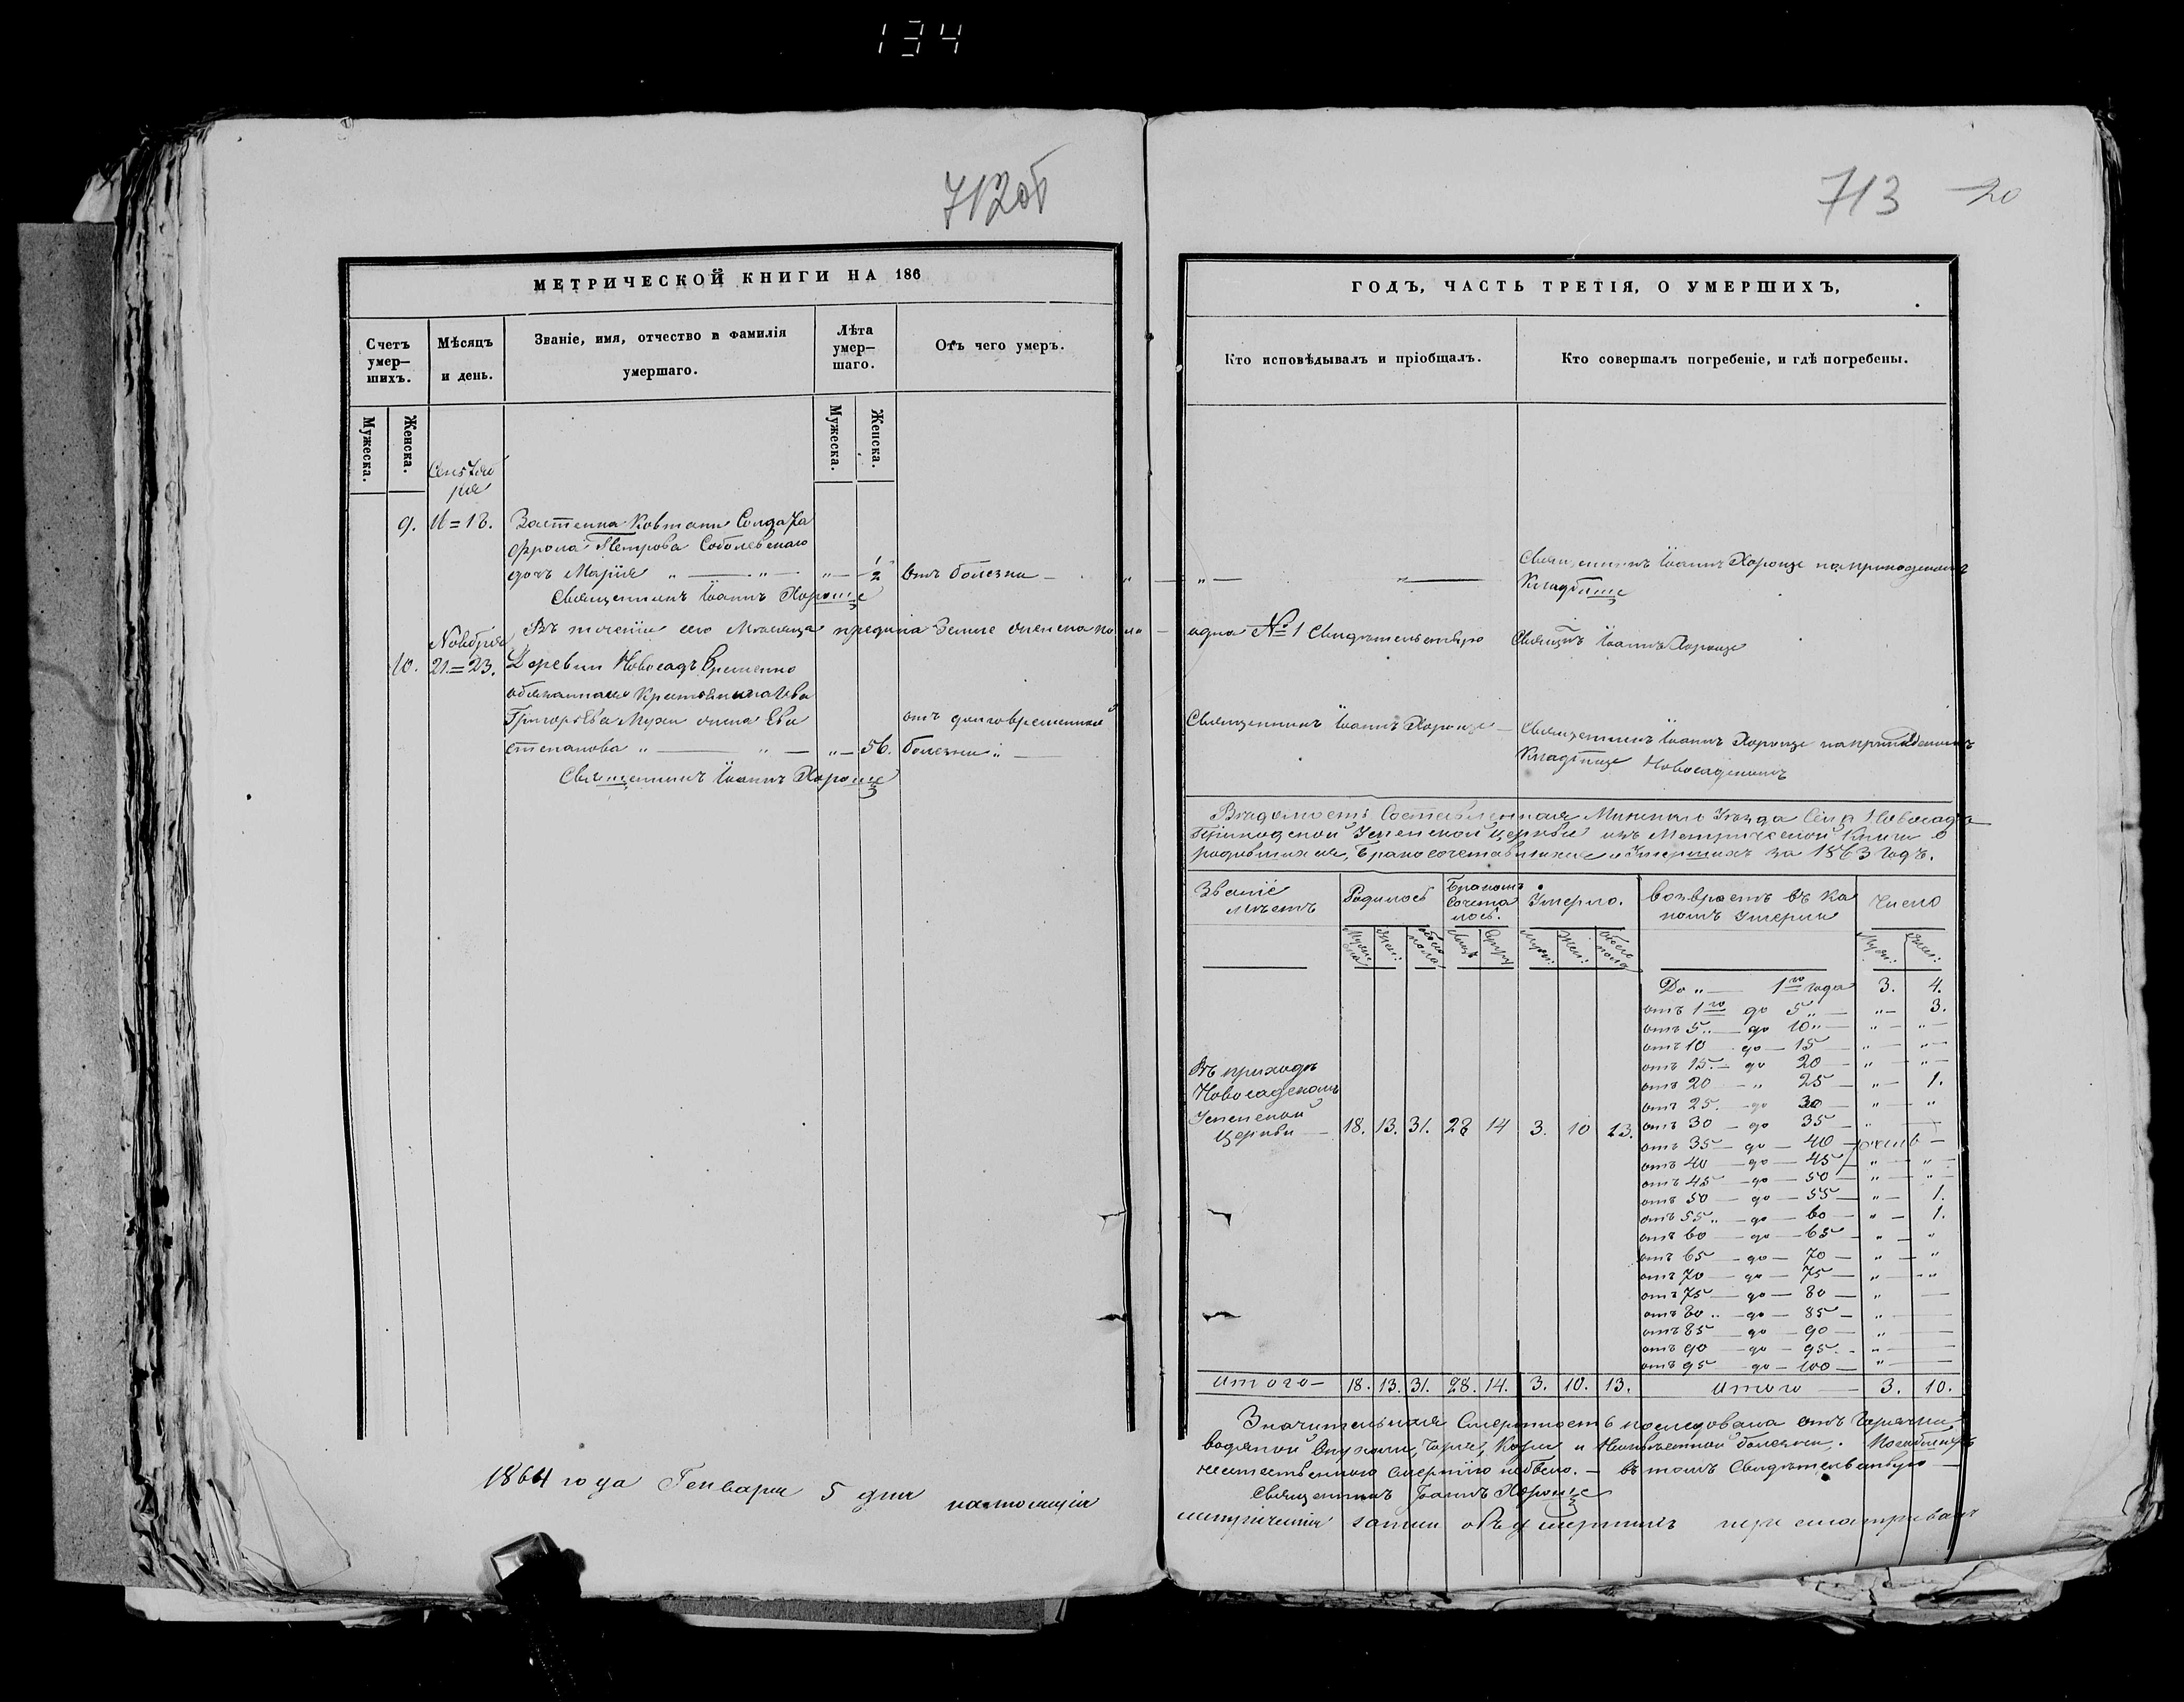 134
712об
МЕТРИЧЕСКОЙ КНИГИ НА 186
Счетъ умер—шихъ.
Мѣсяцъ и день.
Званіе, имя, отчество и фамилія умершаго.
Лѣта умер—шаго.
Отъ чего умеръ.
Мужеска.
Женска.
Мужеска.
Женска.
9. 16=18. Застенка Ковтани Солдата
Фрола Петрова Соболевскаго
дочь Марія " — " — " — 1/2 Отъ болезни —
Священникъ Іоаннъ Хороше
Въ теченіи сего Месяца предана Земле
Ноября
10. 21=23. Деревни Новосадъ Временно
обязаннаго Крестьянина
Григорьева Мухи жена Ева
Степанова " — " — " — 56. отъ долговременной
болезни " —
Священникъ Іоаннъ Хороше
1864 года Генваря 5 дня настоящія
713 20
ГОДЪ, ЧАСТЬ ТРЕТІЯ, О УМЕРШИХЪ,
Кто исповѣдывалъ и пріобщалъ.
Кто совершалъ погребеніе, и гдѣ погребены.
Священникъ Іоаннъ Хороше на приходскомъ
Кладбище
одна № 1 Свидѣтельствую Священ. Іоаннъ Хороше
Священникъ Іоаннъ Хороше — Священникъ Іоаннъ Хороше на приходскомъ
Кладбище Новосадскомъ
Вѣдомость Составленная Минскаго Уѣзда Села Новосадъ
Приходской Успенской Церкви изъ Метрической Книги о
родившихся, Бракосочетавшихся и Умершихъ за 1863 годъ.
Званіе мѣстъ
Родилось
Бракомъ Сочеталось.
Умерло.
Возврастъ въ Ка комъ Умерли
Число
До " — 1го года 3. 4.
отъ 1го до 5 " — " — 3.
отъ 5 " — до 10 " — " — " —
отъ 10 — до — 15 — " — " —
отъ 15. — до 20 — " — " —
отъ 20 — " 25 — " — 1.
отъ 25. — до 30 — " — "
отъ 30 — до 35 — "
отъ 35 — до — 40 —
отъ 40 — до — 45 — " — " —
отъ 45 — до — 50 — " — " —
отъ 50 — до — 55 — " — 1.
отъ 55 " — до — 60 — " — 1.
отъ 60 — до — 65 — " — "
отъ 65 — до — 70 — " — "
отъ 70 — до — 75 — " — "
отъ 75 — до — 80 — " —
отъ 80 " — до — 85 — " —
отъ 85 — до — 90 — " —
отъ 90 — до — 95 — " —
отъ 95 — до — 100 — " —
Въ приходѣ
Новосадскомъ
Успенской
Церкви — 18. 13. 31. 28 14 3. 10 13.
Итого — 18. 13. 31. 28. 14. 3. 10. 13. Итого — 3. 10.
Значительная Смертность последовала отъ Горячки
водяной Опухоли, Кори и болезни.
Смертію небыло. — въ томъ Свидѣтельствую —
Священникъ Іоаннъ Хороше
метрическія записи объ умершихъ